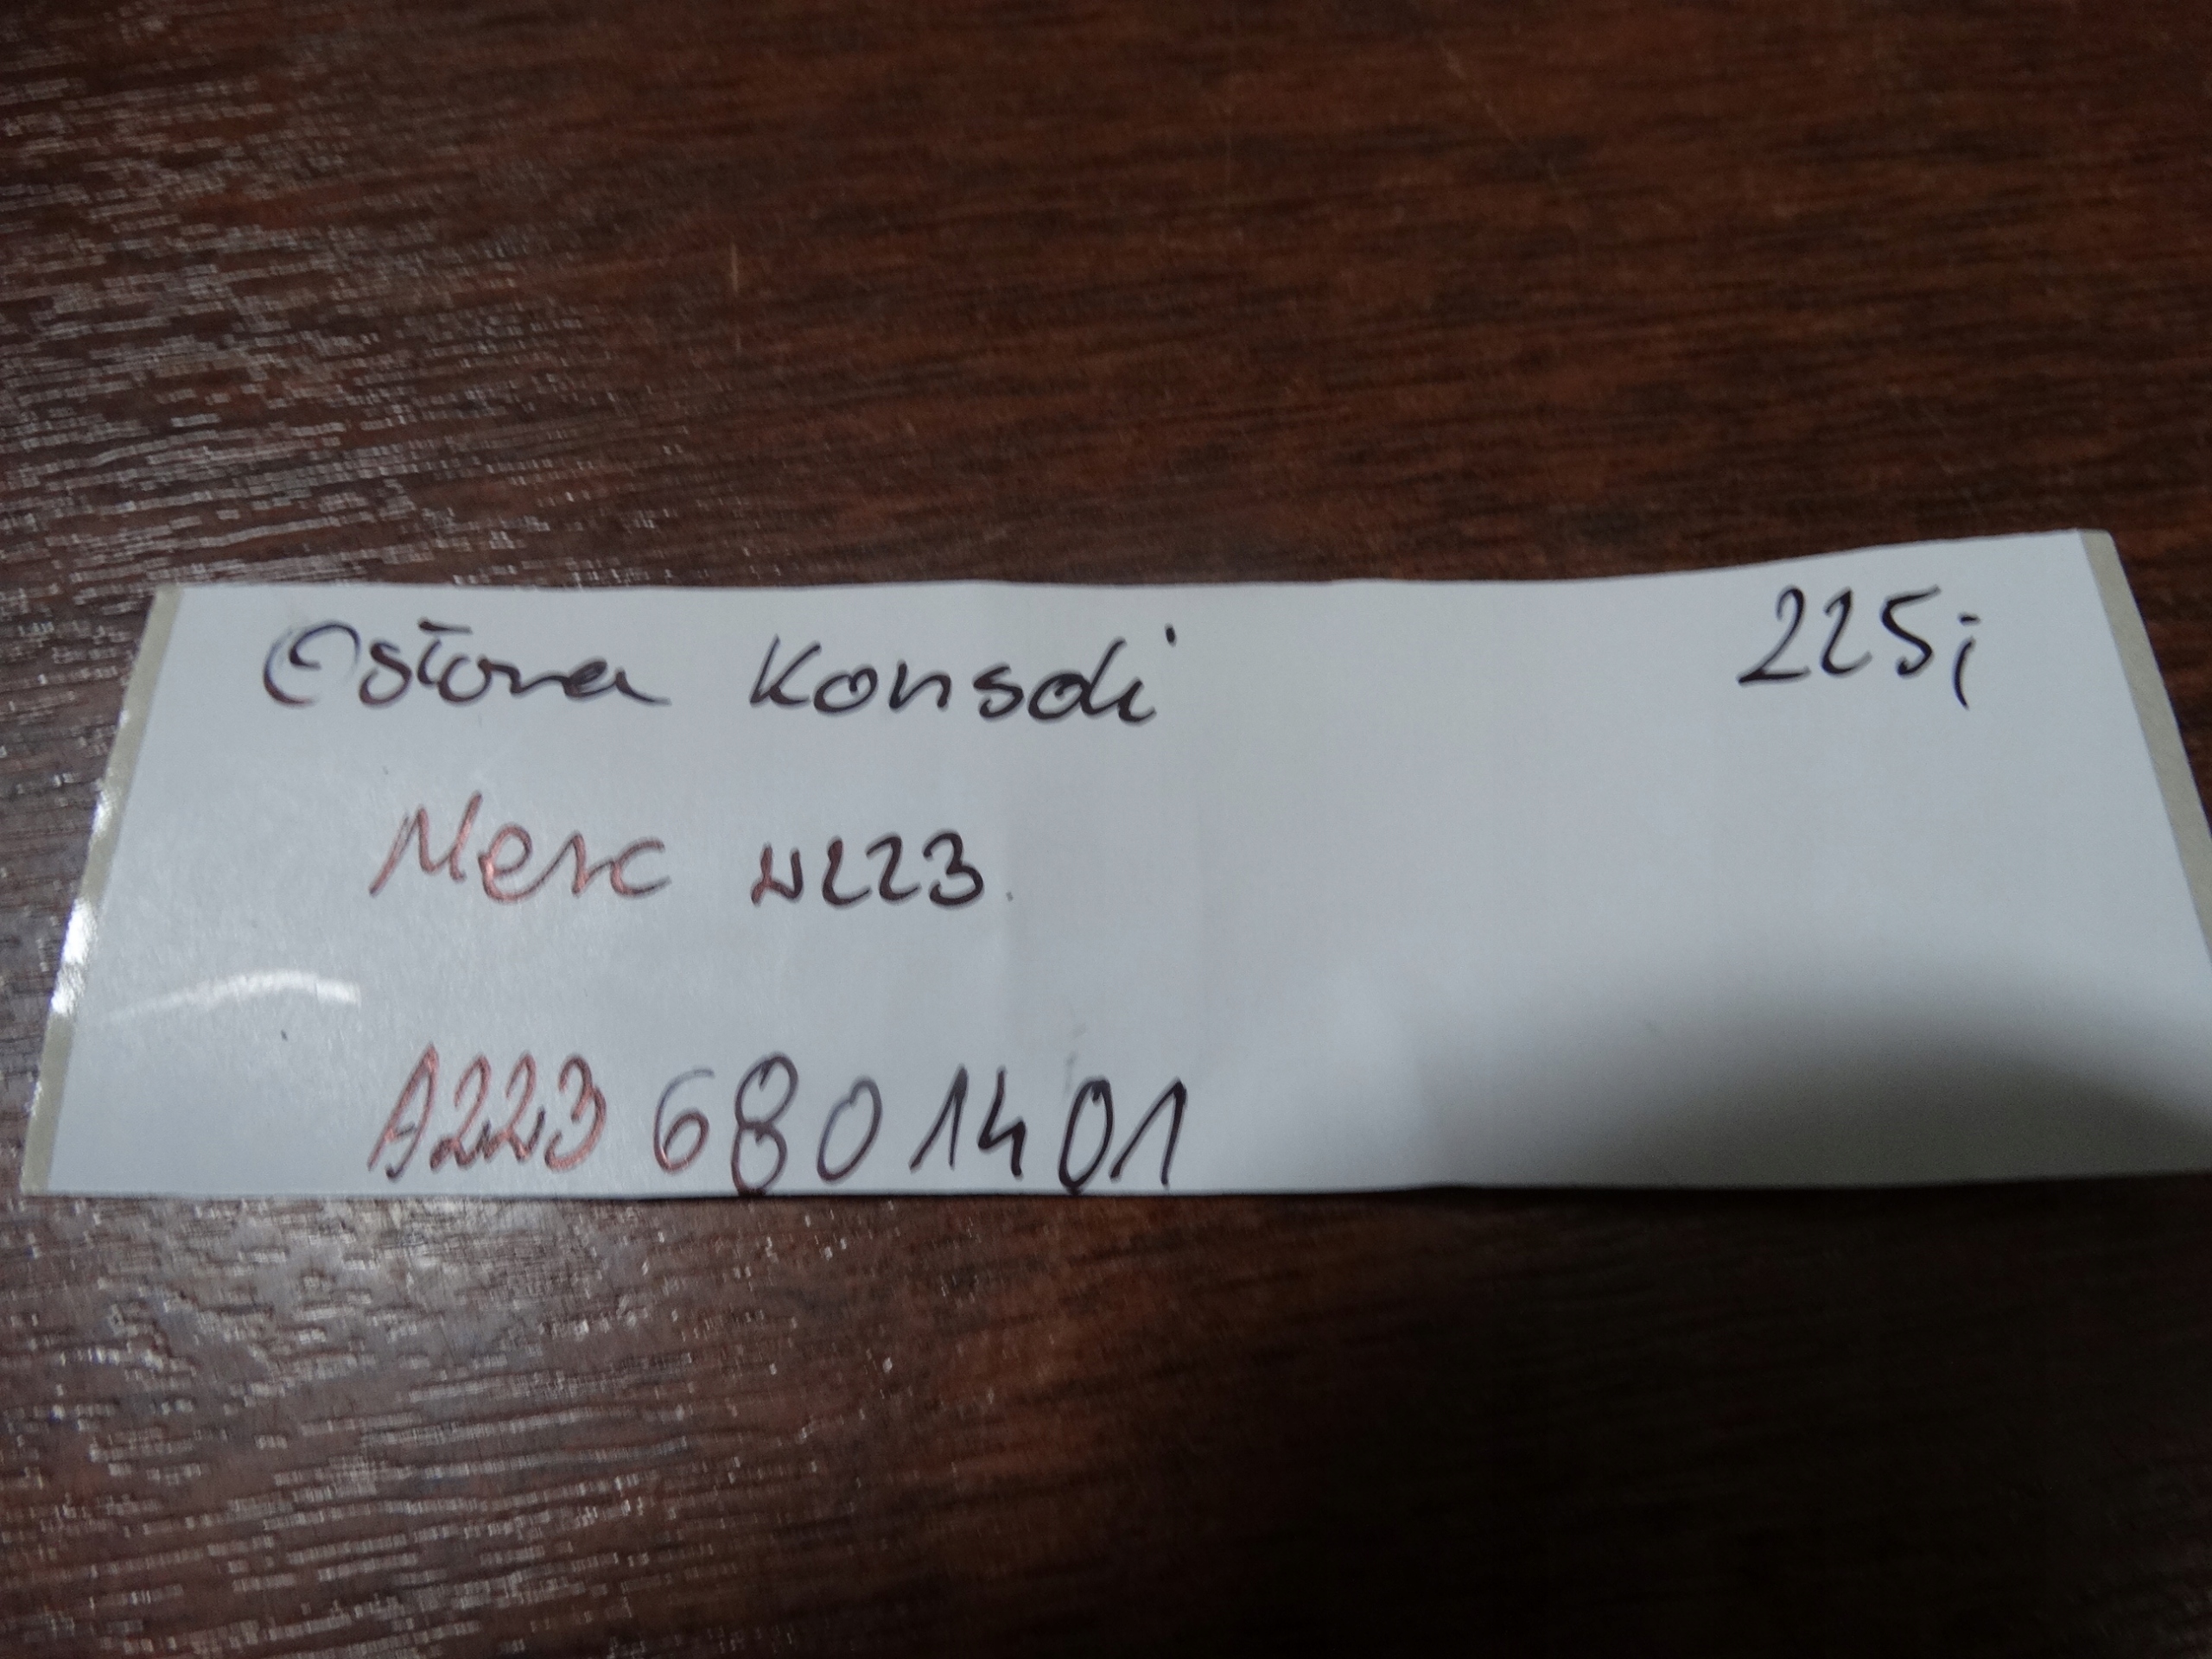 Osłona Konsoli 225i
Merc W223
A223 680 14 01